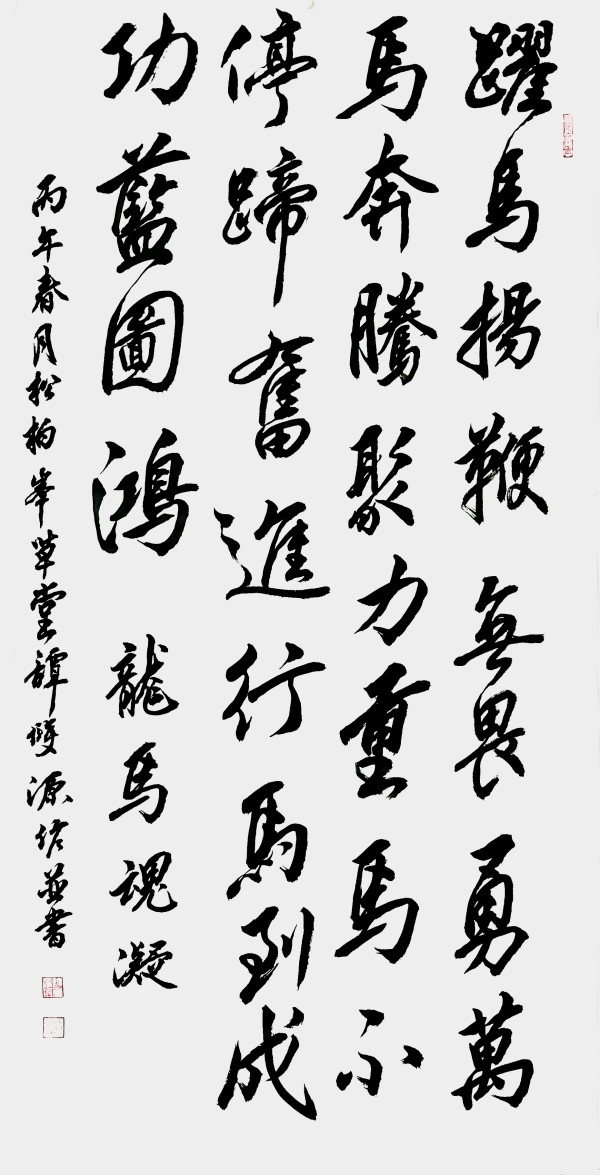 躍馬揚鞭無畏勇萬
馬奔騰聚力重馬不
停蹄奮進行馬到成
功藍圖鴻龍馬魂凝
丙午春月松柏峯草堂譚雙源作並書